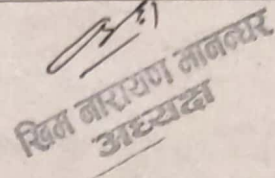 खिम नारायण मानन्धर
अध्यक्ष